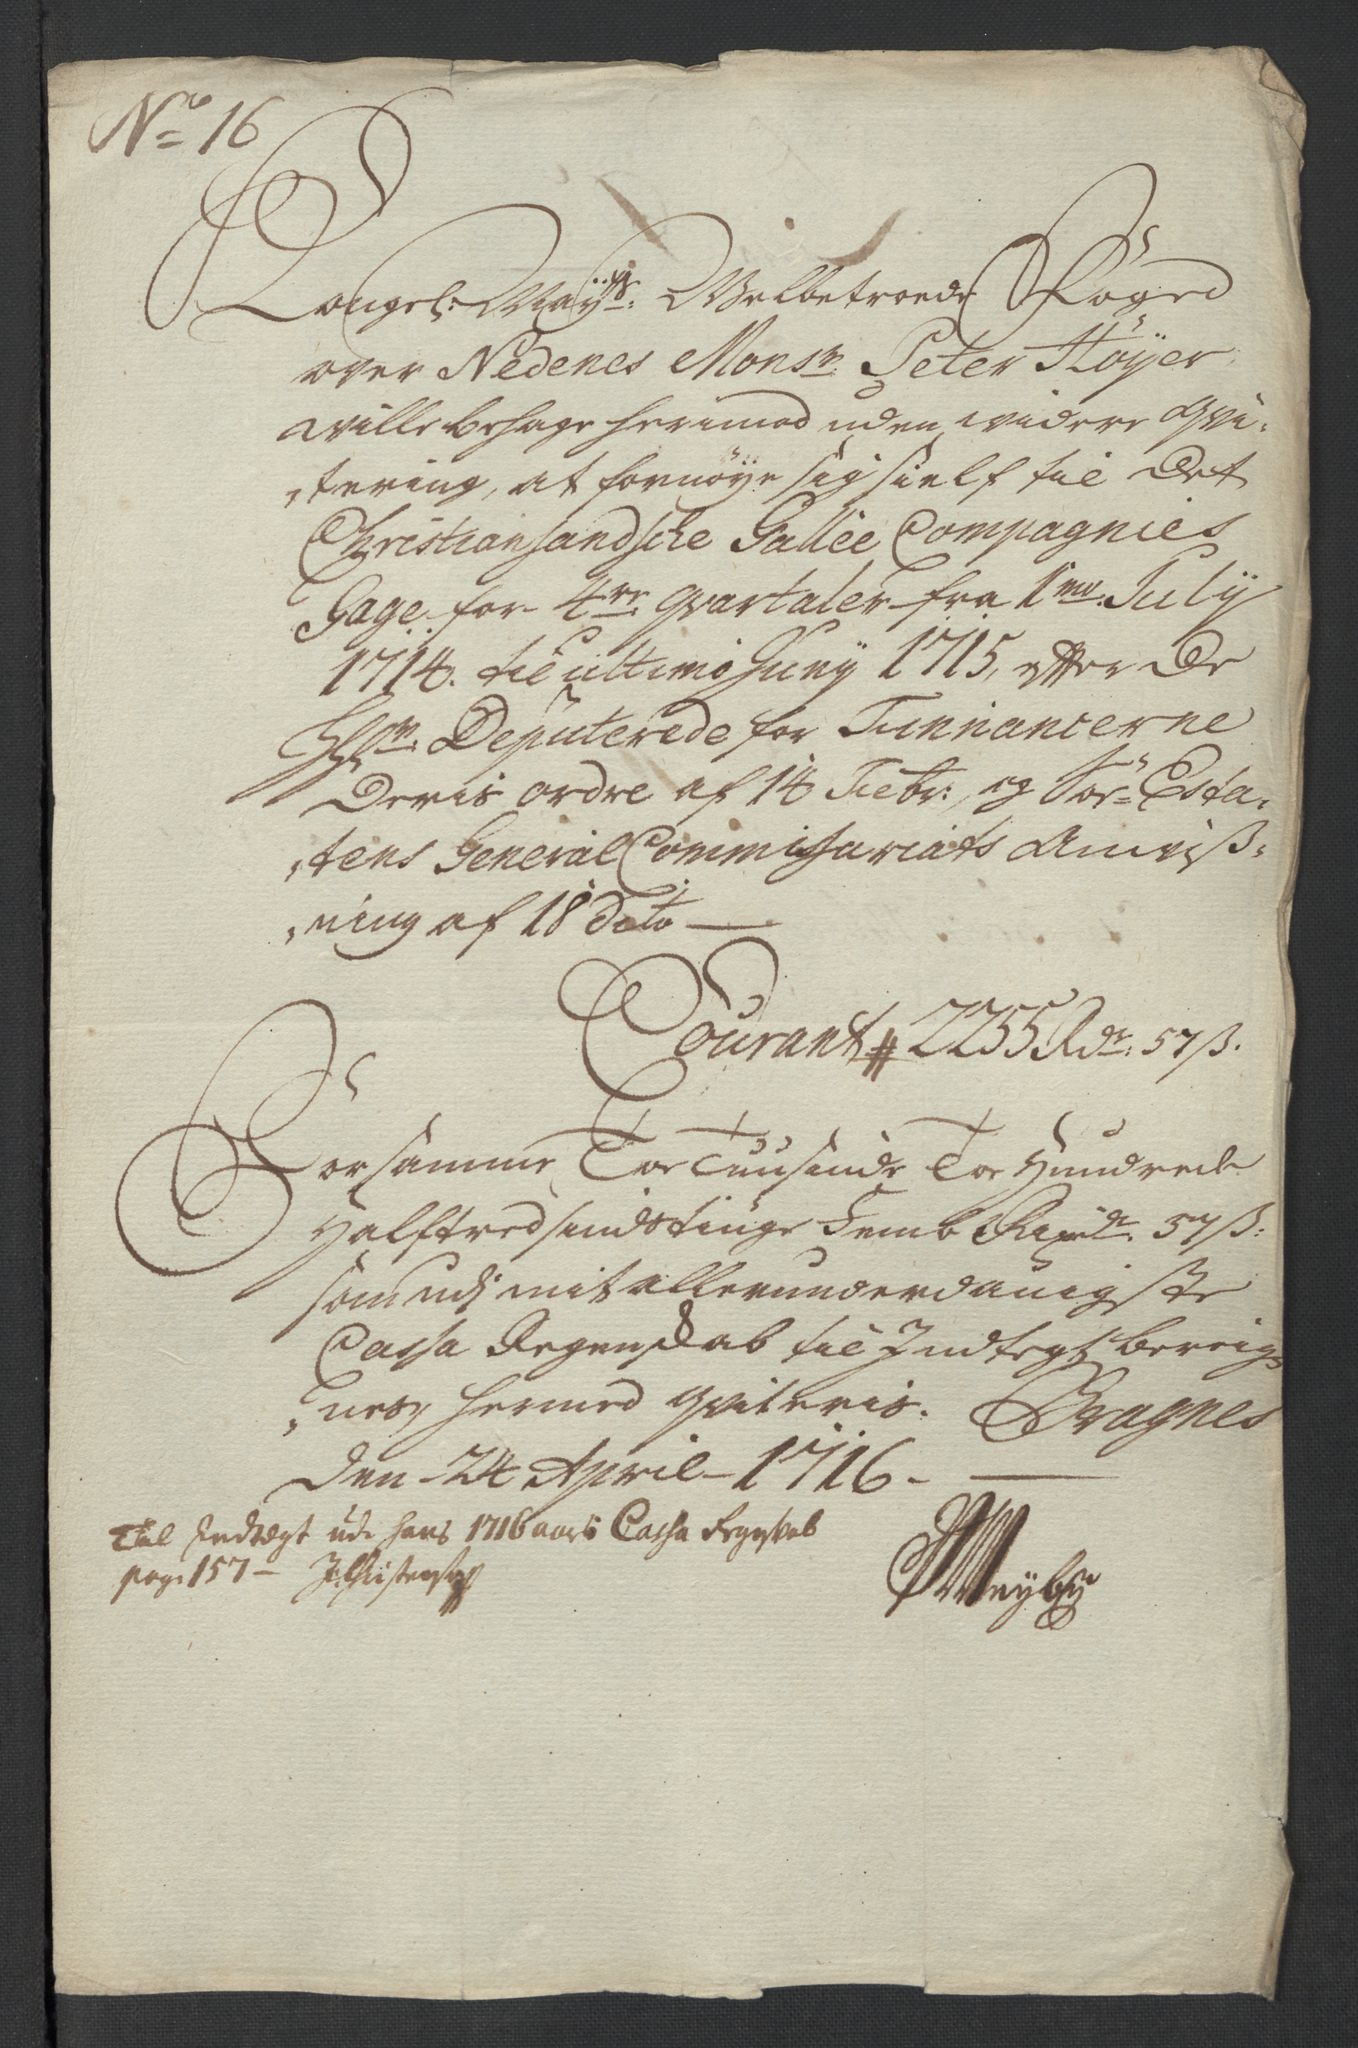 No 16
Kongel: Mayts: Welbetroede Foged
over Nedenes Monsr. Peter Höyer
wille behage herimod uden widere qvi-
tering, at fornöye sig sielf til Det
Christiansandsche Gallee Compagnies
Gage for 4re. qvartaler fra 1mo. July
1714. til ultimo Juny 1715, efter De
Hrr. Deputerede for Finnancerne
Deris ordre af 14 Febr:, og Söe-Esta-
tens General Commissariats Anviiß-
ning af 18 Dito
Courant # 2255 Rdr: 57 ß.
For samme Toe Tuusinde Toe Hundrede
Halftredsindstiuge Femb Rixdr. 57 ß:
som udj mit allerunderdanigste
Cassa Regenskab til Indtegt bereig-
nes, hermed qviteris. Bragnes
den 24 April 1716.
Til Indtægt udi hans 1716 aars Cassa Regnskab
pag: 157 J: Christensen
Weyby